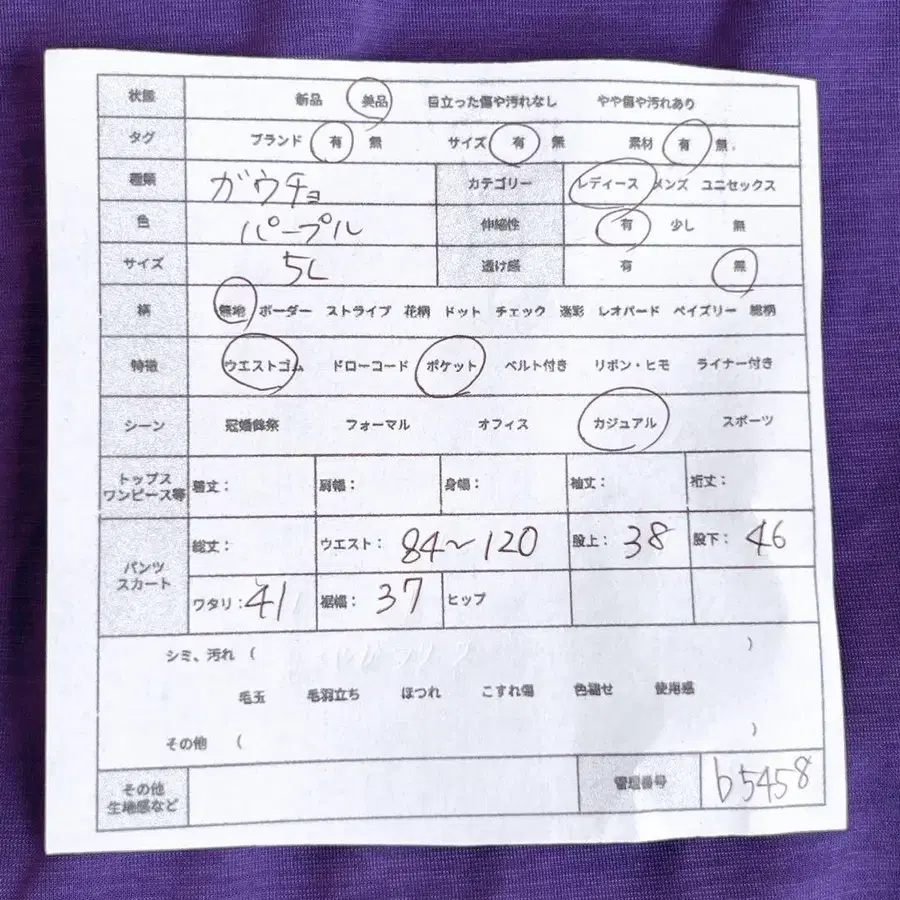 状態 新品 美品 目立った傷や汚れなし やや傷や汚れあり
タグ ブランド 有 無 サイズ 有 無 素材 有 無
種類 ガウチョ カテゴリー レディース メンズ ユニセックス
色 パープル 伸縮性 有 少し 無
サイズ 5L 透け感 有 無
柄 無地 ボーダー ストライプ 花柄 ドット チェック 迷彩 レオパード ペイズリー 総柄
特徴 ウエストゴム ドローコード ポケット ベルト付き リボン・ヒモ ライナー付き
シーン 冠婚葬祭 フォーマル オフィス カジュアル スポーツ
トップス
ワンピース等 着丈: 肩幅: 身幅: 袖丈: 裄丈:
総丈: ウエスト: 84~120 股上: 38 股下: 46
パンツ
スカート
ワタリ: 41 裾幅: 37 ヒップ
シミ、汚れ ( )
毛玉 毛羽立ち ほつれ こすれ傷 色褪せ 使用感
その他 ( )
その他
生地感など 管理番号 b5458